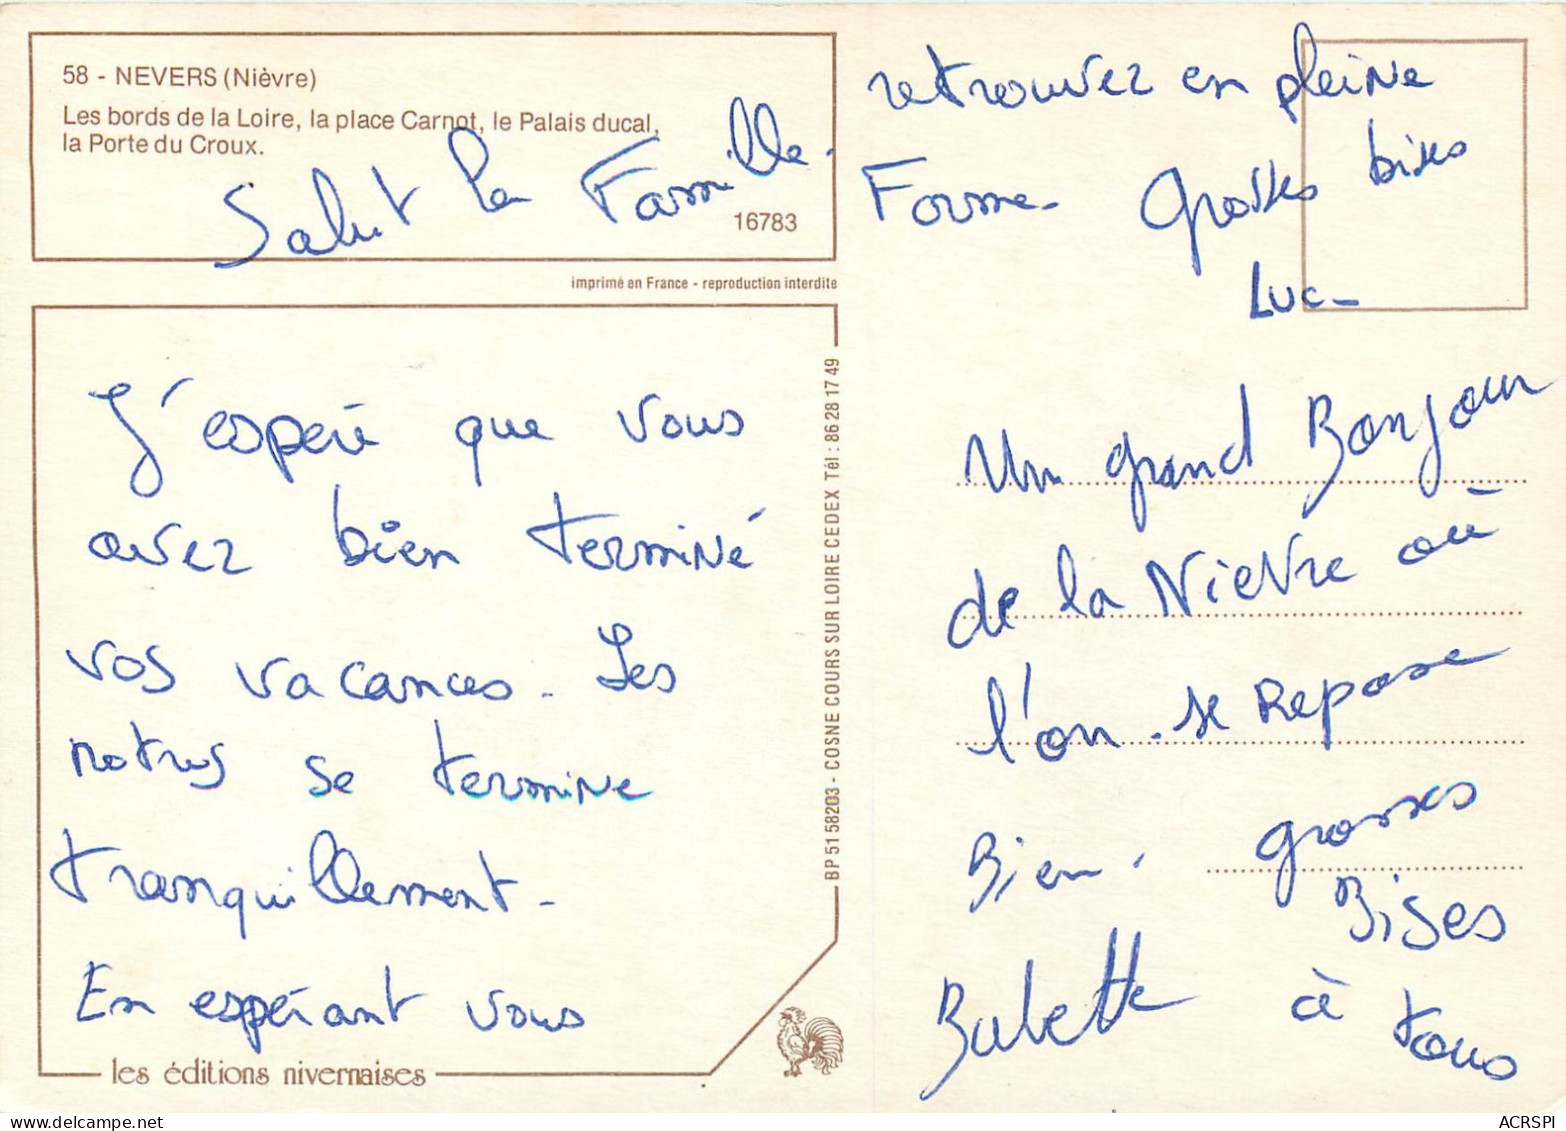 58 - NEVERS (Nièvre)
Les bords de la Loire, la place Carnot, le Palais ducal,
la Porte du Croux.
Salut la Famille.
16783
imprimé en France - reproduction interdite
J'espère que vous
avez bien terminé
vos vacances. Les
notres se termine
tranquillement.
En espérant vous
les éditions nivernaises
BP 51 58203 - COSNE COURS SUR LOIRE CEDEX Tél : 86 28 17 49
retrouver en pleine
Forme. grosses bises
Luc.
Un grand Bonjour
de la Nievre où
l'on se Repose
Bien. grosses
Bises
Babette à tous
ACRSPI